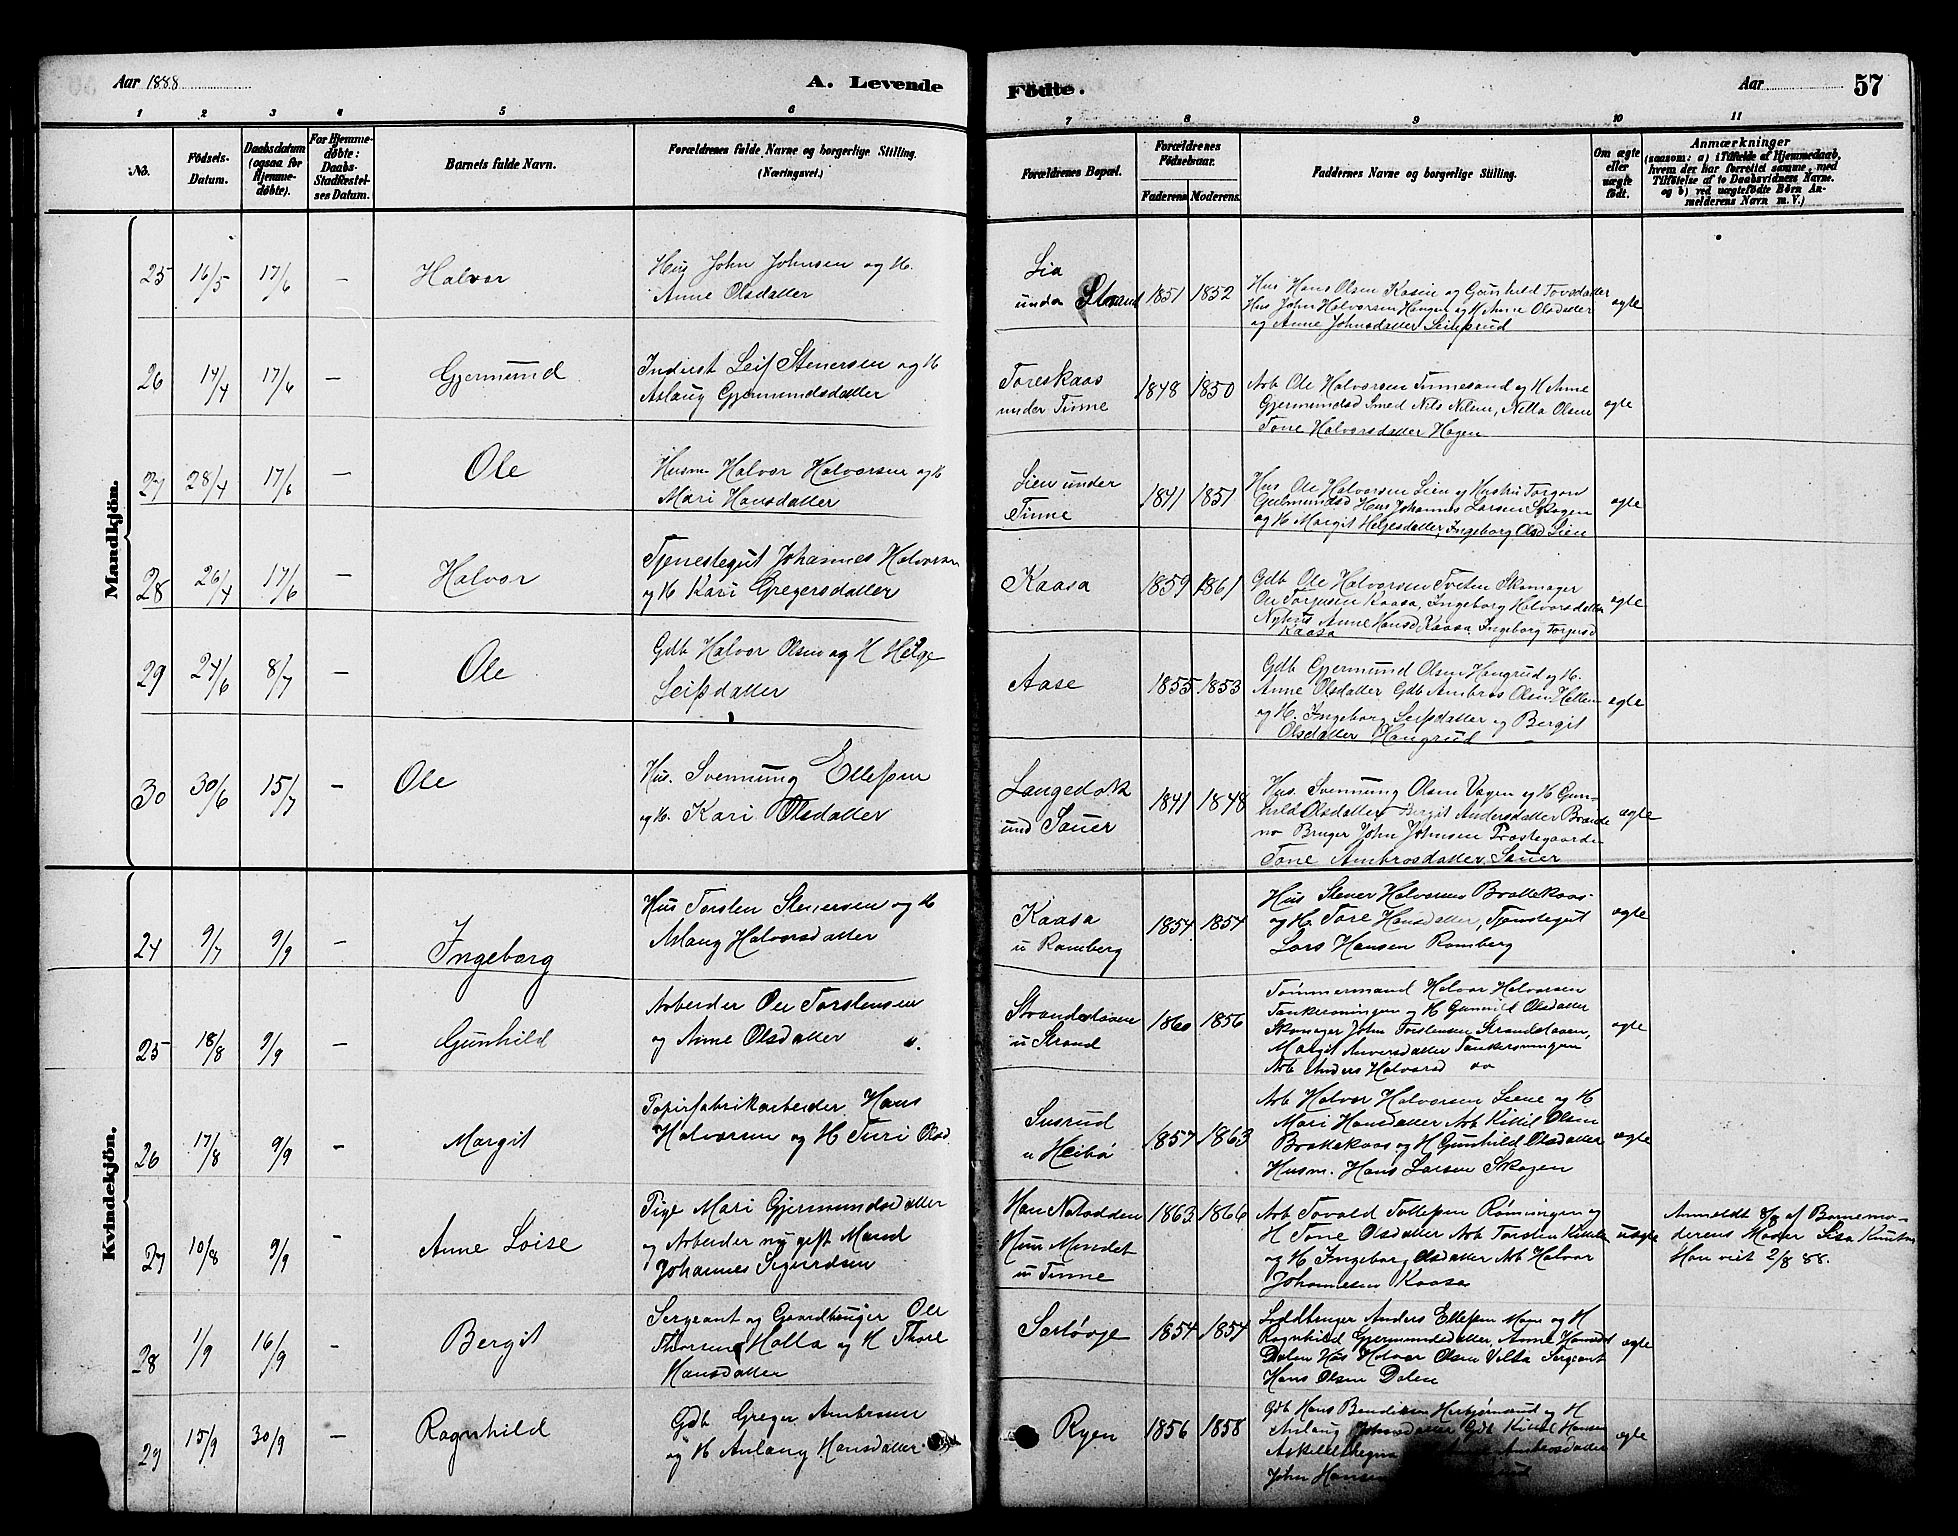 Aar 1888
A. Levende
Födte.
Aar
57
1 2 3 4 5 6 7 8 9 10 11
No.
Födsels-
Datum.
Daabsdatum
(ogsaa for
Hjemme-
døbte).
For Hjemme-
døbte:
Daabs-
Stadfæstel-
ses Datum.
Barnets fulde Navn.
Forældrenes fulde Navne og borgerlige Stilling.
(Næringsvei.)
Forældrenes Bopæl.
Forældrenes
Födselsaar.
Faderens
Moderens.
Faddernes Navne og borgerlige Stilling.
Om ægte
eller
uægte
født.
Anmærkninger
(saasom: a) i Tilfælde af Hjemmedaab,
hvem der har forrettet samme, med
Tilføielse af to Daabsvidners Navne.
og b) ved uægtefödte Börn An-
melderens Navn m. V.)
Mandkjön.
25 16/5 17/6 — Halvor
Hus John Johnsen og H.
Anne Olsdatter
Lia
under Strand
1851 1852
Hus Hans Olsen Kasin og Gunhild Tovsdatter
Hus John Halvorsen Haugen og H Anne Olsdatter
og Anne Johnsdatter
ægte
26 14/4 17/6 — Gjermund
Inderst Leif Stenersen og H
Aslaug Gjermundsdatter
Toreskaas
under Tinne
1848 1850
Arb Ole Halvorsen Tinnesand og H Anne
Gjermundsd Smed Nils Nilsen, Netta Olsen
Tone Halvorsdatter Hagen
ægte
27 28/4 17/6 — Ole
Husm. Halvor Halvorsen og H
Mari Hansdatter
Lien under
Tinne
1841 1851
Hus Ole Halvorsen Lien og Hustru Torgon
Gulmundsd Hus Johannes Larsen Skogen
og H Margit Helgesdatter, Ingeborg Olsd Lien
ægte
28 26/4 17/6 — Halvor
Tjenestegut Johannes Halvorsen
og H Kari Gregersdatter
Kaasa
1859 1861
Gdb Ole Halvorsen Tveten Skomager
Ole Torjusen Kaasa, Ingeborg Halvorsdatter
Nyhus Anne Hansd Kaasa Ingeborg Torjusd
Kaasa
ægte
29 24/6 8/7 — Ole
Gdb Halvor Olsen og H Helge
Leifsdatter
Aase
1855 1853
Gdb Gjermund Olsen Haugrud og H.
Anne Olsdatter Gdb Ambros Olsen
og H. Ingeborg Leifsdatter og Bergit
Olsdatter Haugrud
ægte
30 30/6 15/7 — Ole
Hus. Svennung Ellefsen
og H. Kari Olsdatter
Langedok
und Sauer
1841 1848
Hus. Svennung Olsen Vagen og H Gun-
hild Olsdatter Bergit Andersdatter
Bruger John Johnsen Præstegaarden
Tone Ambrosdatter Sauer
ægte
Kvindekjön.
24 9/7 9/9 — Ingeborg
Hus Torsten Stenersen og H
Aslaug Halvorsdatter
Kaasa
u Ramberg
1854 1854
Hus Stener Halvorsen Brattekaas
og H. Tore Hansdatter, Tjenstegut
Lars Hansen Ramberg
ægte
25 18/8 9/9 — Gunhild
Arbeider Ole Torstensen
og Anne Olsdatter
Strandstaaen
u Strand
1860 1856
Tømmermand Halvor Halvorsen
og H Gunhild Olsdatter
Skomager John Torstensen Strandstaaen,
Margit
Arb Anders Halvorsd
ægte
26 17/8 9/9 — Margit
Papirfabrikarbeider Hans
Halvorsen og H Turi Olsd.
Susrud
u Heibø
1857 1863
Arb Halvor Halvorsen Liene og H
Mari Hansdatter Arb Kittil Olsen
Brattekaas og H Gunhild Olsdatter
Husm. Hans Larsen Skogen
ægte
27 10/8 9/9 — Anne Loise
Pige Mari Gjermundsdatter
og Arbeider ny gift Mand
Johannes Sigurdsen
Han Notodden
Hun Mindet
u Tinne
1863 1866
Arb Tovald Tollefsen Rønningen og
H Tone Olsdatter Arb Torsten
og H Ingeborg Olsdatter Arb Halvor
Johannesen Kaasa
uægte
Anmeldt 8/8 af Barnemo-
derens Moder Lisa Knutsen
Han viet 2/8 88.
28 1/9 16/9 — Bergit
Sergeant og Gaardbruger Ole
Thorsen Holla og H Thore
Hansdatter
Sertøvje
1854 1854
Loddbruger Anders Ellefsen Moen og H
Ragnhild Gjermundsdatter, Anne Hansdt
Dalen Hus Halvor Olsen Sergeant
Hans Olsen Dalen
ægte
29 15/9 30/9 — Ragnhild
Gdb Greger Ambrosen
og H Anlaug Hansdatter.
Ryen
1856 1858
Gdb Hans Bendiksen og H
Aslaug Johnsdatter Gdb Kittil Hansen
Ambrosdatter
John Hansen
ægte